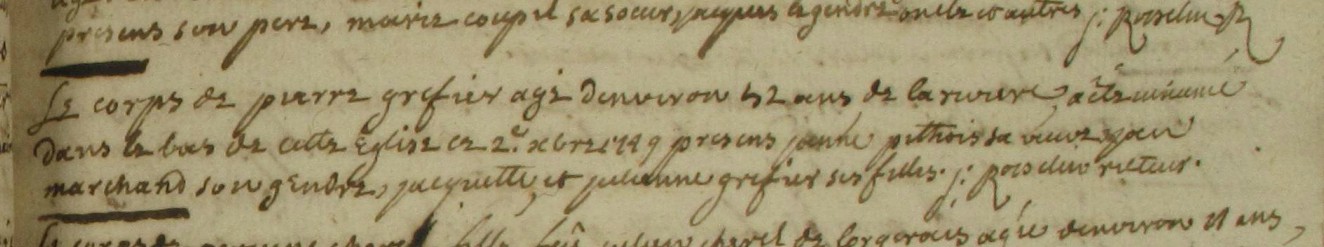 presens son pere, marie coupel sa soeur, jacques legendre oncle et autres j: Roselin R
Le corps de pierre grefier agé denviron 52 ans de lariviere, a été inhumé
dans le bas de cette Eglise ce 2e xbre presens janne pithois sa veuve, jean
marchand son gendre, jacquette, et julienne grefier ses filles. j: Roselin recteur.
Le corps de fille julien de agée denviron 11 ans,